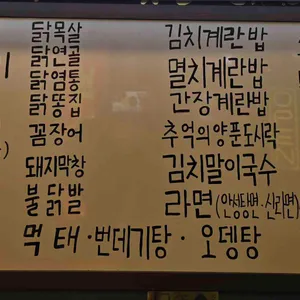 닭목살
닭연골
닭염통
닭똥집
꼼장어
돼지막창
불닭발
김치계란밥
멸치계란밥
간장계란밥
추억의양푼도시락
김치말이국수
라면(안성탕면·신라면)
먹태·번데기탕·오뎅탕